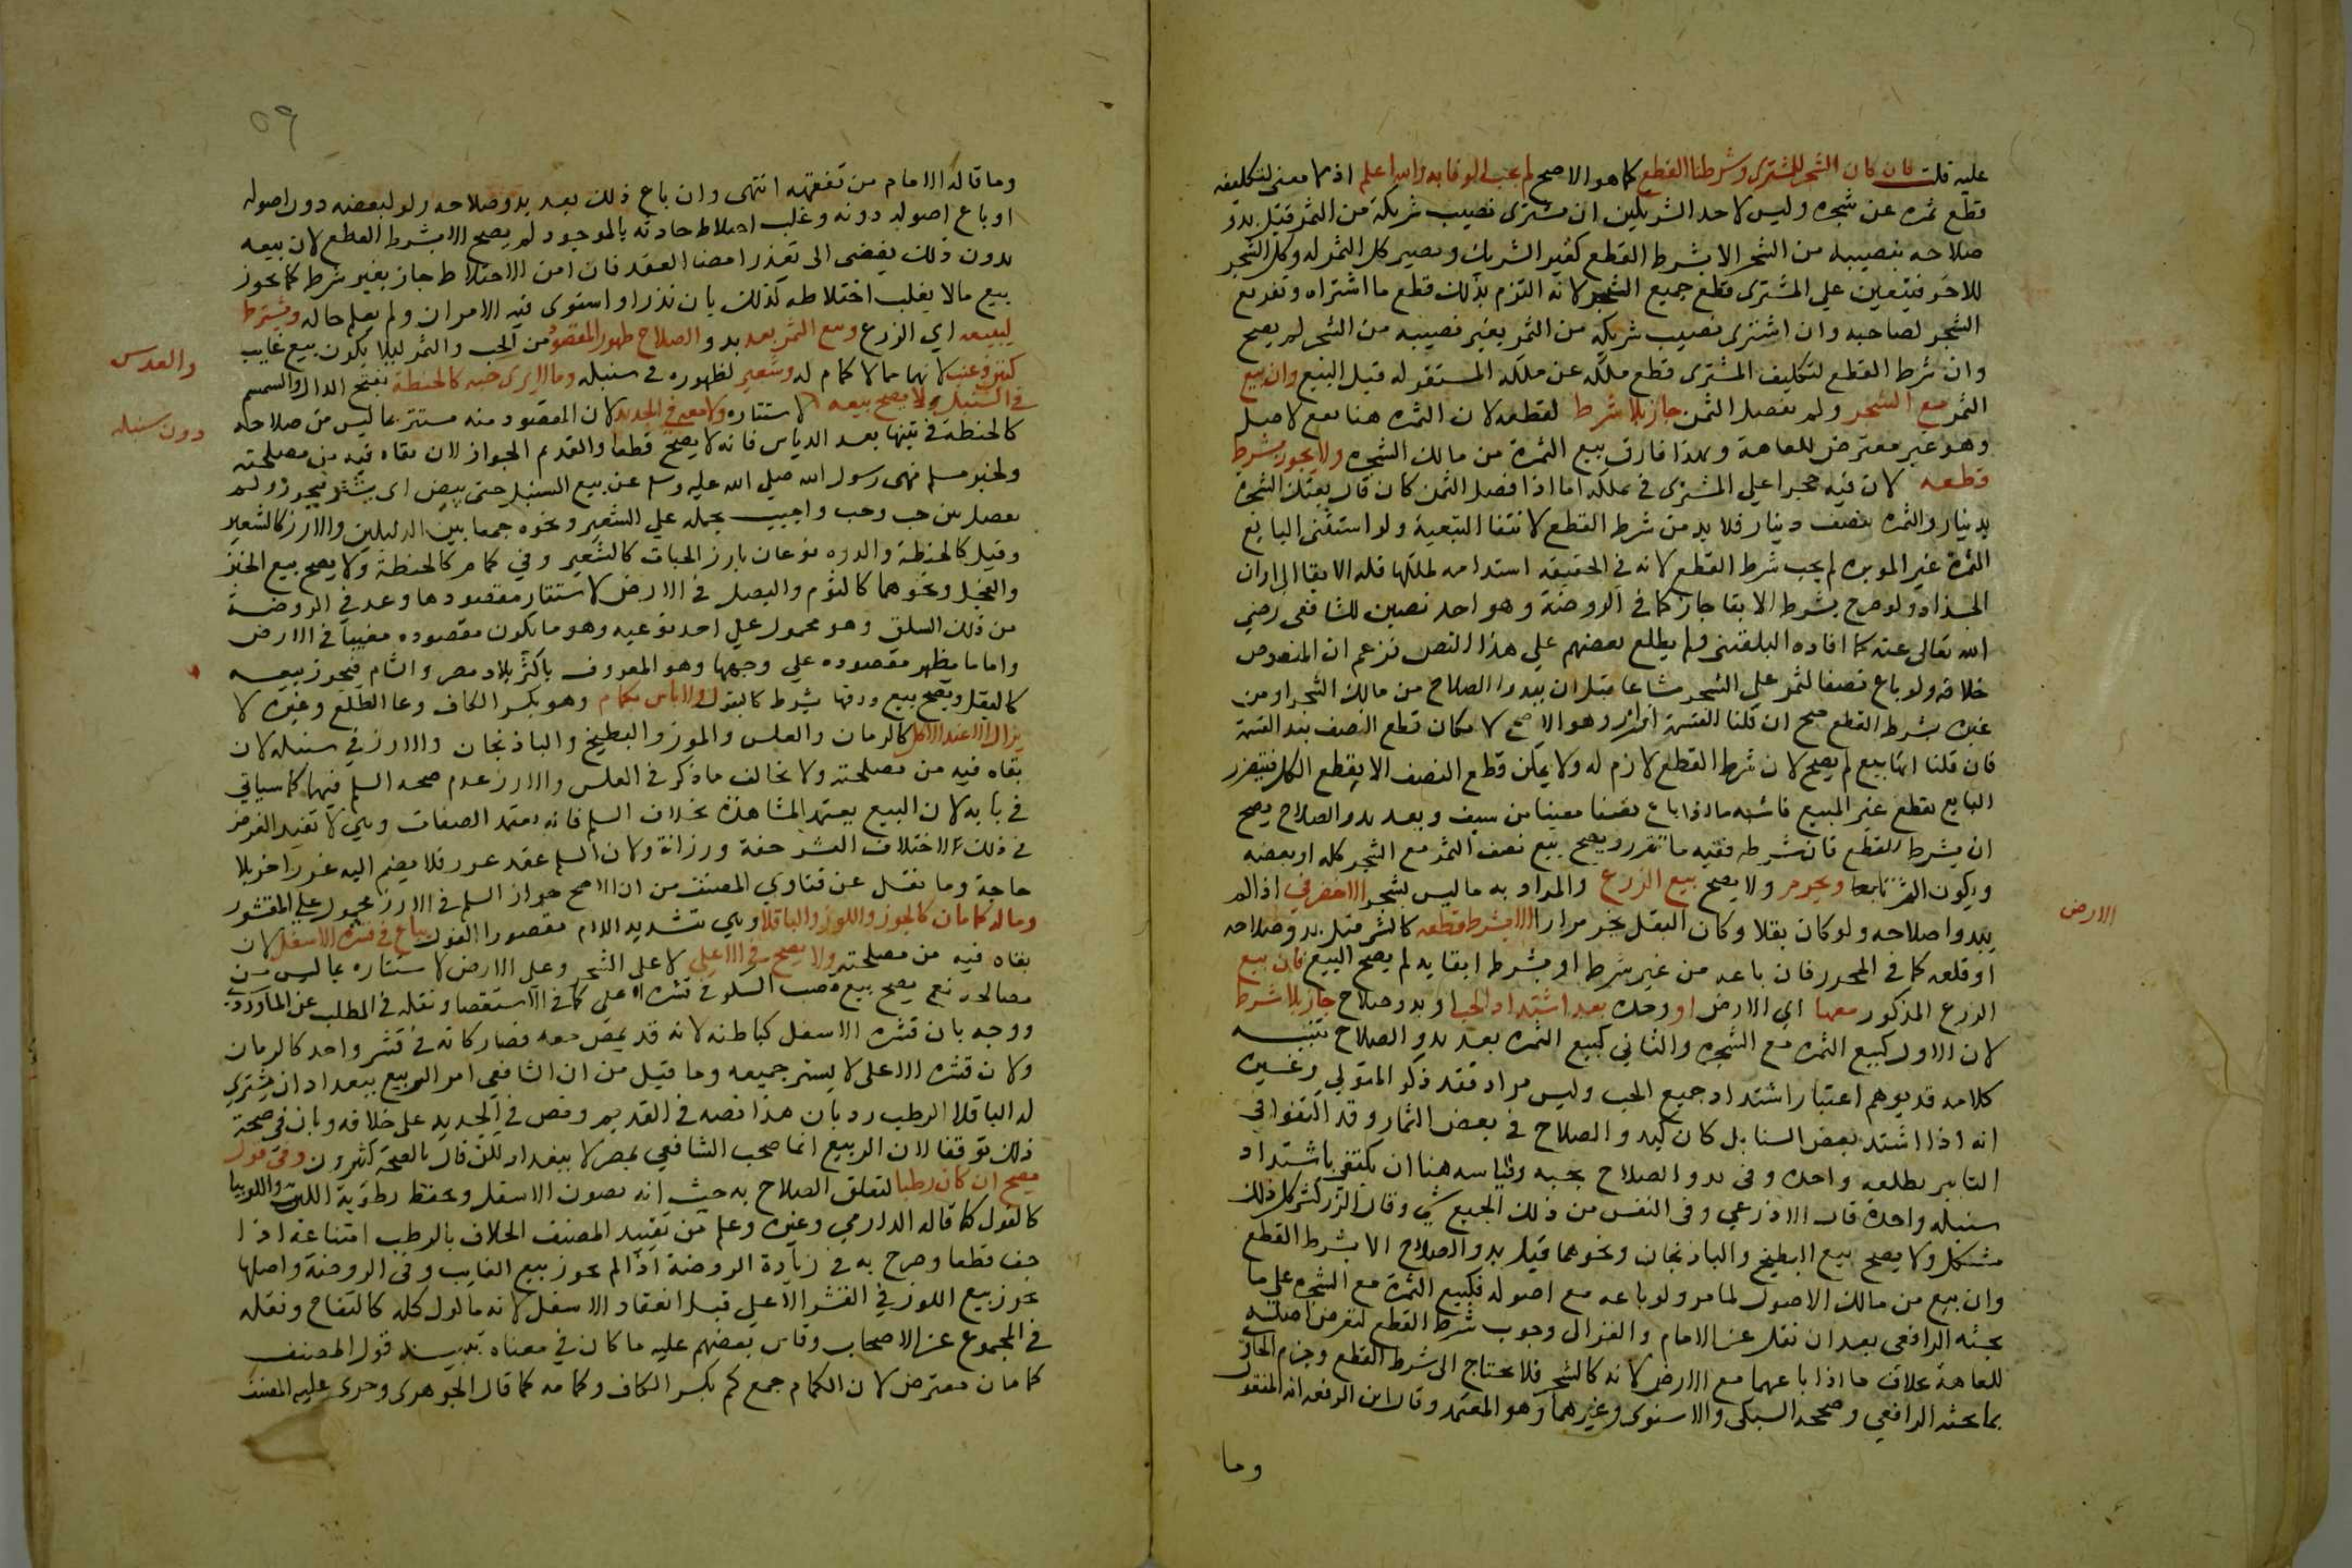 عليه قلت فان كان الشجر للمشترى وشرطنا القطع كما هو الاصح لم يجب الوفا به والله اعلم اذ لا معنى لتكليفه
قطع ثمره عن شجره وليس لاحد الشريكين ان يشترى نصيب شريكه من الثمر قبل بدو
صلاحه بنصيبه من الشجر الا بشرط القطع كغير الشريك ويصير كل الثمر له وكل الشجر
للاخر فيتعين على المشترى قطع جميع الثمر لانه التزم بذلك قطع ما اشتراه وتفريع
الشجر لصاحبه وان اشترى نصيب شريكه من الثمر بغير نصيبه من الشجر لم يصح
وان شرط القطع لتكليف المشترى قطع ملكه عن ملكه المستقر له قبل البيع وان بيع
الثمر مع الشجر ولم يفصل الثمن جاز بلا شرط لقطعه لان الثمره هنا تبع لاصل
وهو غير معترض للعاهة وبهذا فارق بيع الثمرة من مالك الشجره ولا يجوز بشرط
قطعه لان فيه حجرا على المشترى في ملكه اما اذا فصل الثمن كان قال بعتك الشجرة
بدينار والثمره بنصف دينار فلا بد من شرط القطع لانتفا التبعية ولو استثنى البايع
الثمرة غير الموبره لم يجب شرط القطع لانه في الحقيقه استدامه لملكها فله الابقا الى اوان
الجذاذ ولو صرح بشرط الابقا جاز كما في الروضة وهو احد نصين للشافعى رضي
الله تعالى عنه كما افاده البلقينى ولم يطلع بعضهم على هذا النص فزعم ان المنصوص
خلافه ولو باع نصف الثمر على الشجر مشاعا قبل ان يبدوا الصلاح من مالك الشجر او من
غيره بشرط القطع صح ان قلنا القسمة افراز وهو الاصح لامكان قطع النصف بعد القسمة
فان قلنا انها بيع لم يصح لان شرط القطع لازم له ولا يمكن قطع النصف الا بقطع الكل فيتضرر
البايع بقطع غير المبيع فاشبه ما اذا باع نصفا معينا من سيف وبعد بدو الصلاح يصح
ان بشرط القطع فان شرطه ففيه ما تقرر ويصح بيع نصف الثمر مع الشجر كله او بعضه
ويكون الثمر تابعا ويحرم ولا يصح بيع الزرع والمراد به ما ليس بشجر الاخضر في اذا لم
الارض
يبدوا صلاحه ولو كان بقلا وكان البقل يجز مرارا الا بشرط قطعه كالثمر قبل بدو صلاحه
او قلعه كما في المحرر فان باعه من غير شرط او بشرط ابقايه لم يصح البيع فان بيع
الزرع المذكور معها اي الارض او وحده بعد اشتداد الحب او بدو صلاح جاز بلا شرط
لان الاول كبيع الثمره مع الشجره والثاني كبيع الثمره بعد بدو الصلاح تنبيه
كلامه قد يوهم اعتبار اشتداد جميع الحب وليس مراد فقد ذكر المتولي وغيره
انه اذا اشتد بعض السنابل كان كبدو الصلاح في بعض الثمار وقد اكتفوا في
التابير بطلعه واحده وفى بدو الصلاح بحبه وقياسه هنا ان يكتفي باشتداد
سنبله واحدة قال الاذرعي وفى النفس من ذلك الجميع شي وقال الزركشي كل ذلك
مشكل ولا يصح بيع البطيخ والباذنجان ونحوهما قبل بدو الصلاح الا بشرط القطع
وان بيع من مالك الاصول لما مر ولو باعه مع اصوله فكبيع الثمرة مع الشجره على ما
بحثه الرافعى بعد ان نقل عن الامام والغزالى وجوب شرط القطع لتعرض اصله
للعاهة بخلاف ما اذا باعهما مع الارض لانه كالشجر فلا يحتاج الى شرط القطع وجزم الحاوى
بما بحثه الرافعي وصححه السبكى والاسنوى وغيرهما وهو المعتمد وقال ابن الرفعه انه المنقول
وما
٥٩
وما قاله الامام من تفقهه انتهى وان باع ذلك بعد بدو صلاحه ولو لبعضه دون اصوله
او باع اصوله دونه وغلب اختلاط حادثه بالموجود لم يصح الا بشرط القطع لان بيعه
بدون ذلك يفضى الى تعذر امضا العقد فان امن الاختلاط جاز بغير شرط كما يجوز
بيع ما لا يغلب اختلاطه كذلك بان ندر او استوى فيه الامران ولم يعلم حاله ويشترط
لبيعه اي الزرع وبيع الثمر بعد بدو الصلاح ظهور المقصود من الحب والثمر ليلا يكون بيع غايب
كتين وعنب لانهما مما لا كمام له وشعير لظهوره في سنبله وما لا يرى حبه كالحنطة بفتح الدال والسمسم
والعدس
في السنبل لا يصح بيعه لاستتاره ولا معه في الجديد لان المقصود منه مستتر بما ليس من صلاحه
دون سنبله
كالحنطة في تبنها بعد الدياس فانه لا يصح قطعا والقديم الجواز لان بقاه فيه من مصلحته
ولخبر مسلم نهى رسول الله صلى الله عليه وسلم عن بيع السنبل حتى يبيض اى يشتد فيجوز ولم
يفصل بين حب وحب واجيب بحمله على الشعير ونحوه جمعا بين الدليلين والارز كالشعير
وقيل كالحنطة والدره نوعان بارز الحبات كالشعير وفي كمام كالحنطة ولا يصح بيع الجزر
والفجل ونحوهما كالثوم والبصل في الارض لاستتار مقصودها وعد في الروضة
من ذلك السلق وهو محمول على احد نوعيه وهو ما يكون مقصوده مغيبا في الارض
واما ما يظهر مقصوده على وجهها وهو المعروف باكثر بلاد مصر والشام فيجوز بيعه
كالبقل ويصح بيع ورقها بشرط كالبقول ولا باس بكمام وهو بكسر الكاف وعا الطلع وغيره لا
يزال الا عند الاكل كالرمان والعلس والموز والبطيخ والباذنجان والارز في سنبله لان
بقاه فيه من مصلحته ولا يخالف ما ذكر في العلس والارز عدم صحه السلم فيهما كما سياتي
في بابه لان البيع يعتمد المشاهدة بخلاف السلم فانه يعتمد الصفات وهي لا تفيد الغرض
في ذلك لاختلاف القشر خفة ورزانة ولان السلم عقد غرر فلا يضم اليه غرر اخر بلا
حاجة وما نقل عن فتاوي المصنف من ان الاصح جواز السلم في الارز محمول على المقشور
وما له كمامان كالجوز واللوز والباقلا وهي بتشديد اللام مقصورا الفول يباع في قشره الاسفل لان
بقاه فيه من مصلحته ولا يصح في الاعلى لا على الشجر وعلى الارض لاستتاره بما ليس من
مصالحه نعم يصح بيع قصب السكر في قشره الاعلى كما في الاستقصا ونقله في المطلب عن الماوردي
ووجه بان قشره الاسفل كباطنه لانه قد يمص معه فصار كانه في قشر واحد كالرمان
ولان قشره الاعلى لا يستر جميعه وما قيل من ان الشافعي امر الربيع ببغداد ان يشترى
له الباقلا الرطب رد بان هذا نصه في القديم ونص في الجديد على خلافه وبان في صحة
ذلك توقفا لان الربيع انما صحب الشافعي بمصر لا ببغداد لكن قال بالصحة كثيرون وفى قول
يصح ان كان رطبا لتعلق الصلاح به حيث انه يصون الاسفل ويحفظ رطوبة اللب واللوبيا
كالفول كما قاله الدارمي وغيره وعلم من تقييد المصنف الخلاف بالرطب امتناعه اذا
جف قطعا وصرح به في زيادة الروضة اذا لم يجوز بيع الغايب وفي الروضة واصلها
يجوز بيع اللوز في القشر الاعلى قبل انعقاد الاسفل لانه ماكول كله كالتفاح ونقله
في المجموع عن الاصحاب وقاس بعضهم عليه ما كان في معناه تنبيه قول المصنف
كمامان معترض لان الكمام جمع كم بكسر الكاف وكمامه كما قال الجوهرى وجرى عليه المصنف